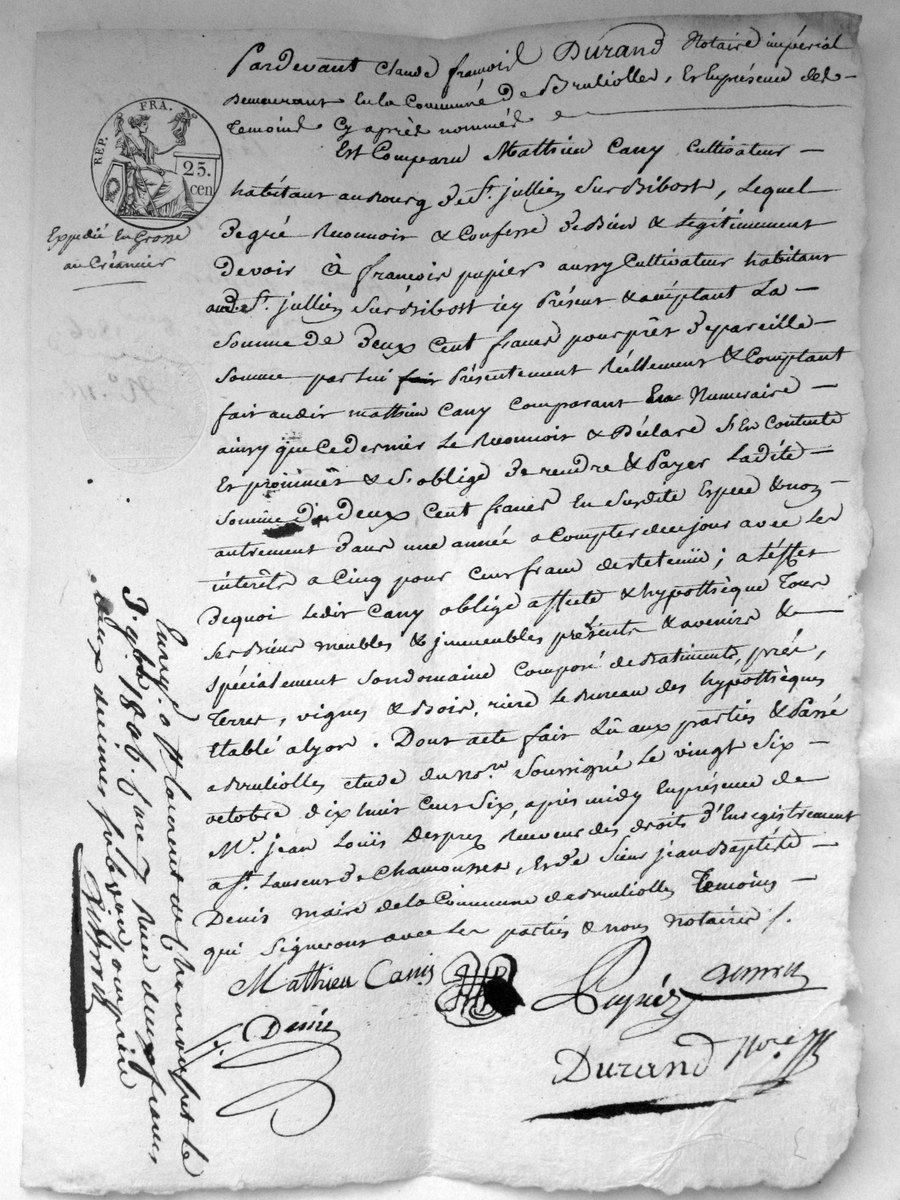 Pardevant Claude françois DURAND Notaire impérial
Demeurant En la Commune De Brullioles, Et En présence des
Temoins Cy après nommés
Est Comparu Mathieu Cany Cultivateur
habitant au Bourg De St. jullien Sur Bibost, Lequel
De gré Reconnoit & Confesse De Bien & Légitimement
Devoir à françois pupier aussy Cultivateur habitant
audit St. jullien Sur Bibost icy Présent & acceptant La
Somme De Deux Cent francs pour prêt De pareille
Somme par Lui fait Présentement Réellement & Comptant
fait audit mathieu Cany Comparant En Numeraire
ainsy que Ce dernier Le Reconnoit & Déclare S'En Contente
Et promêt & S'oblige De rendre & Payer Ladite
Somme De Deux Cent francs En Susdite Espece & non
autrement Dans une année a Compter de ce jour avec Les
interêts a Cinq pour Cent franc de retenüe; a L'effet
De quoi Ledit Cany oblige affecte & hypothèque Tous
Ses Biens meubles & jmmeubles présents & avenirs &
Spécialement Son domaine Composé de Batiments, prés,
Terres, vignes & Bois, riere Le Bureau des hypothèques
Etablé a Lyon. Dont acte fait Lû aux parties & Passé
a Brullioles étude du Nore. Soussigné Le vingt Six
octobre dix huit Cent Six, après midy En présence de
Mr. jean Loüis Desprez Receveur des droits D'Enregistrement
a St. Laurent De Chamousset, Et De Sieur jean Baptiste
Denis maire de La Commune de Brullioles Temoins
qui Signerons avec Les parties & nous notaires /.
Mathieu Canis
Denis
DURAND Nore
REP. FRA.
25. cen
Expedié En Grosse
au Créancier
Enregé. a St. Laurent de Chamousset Le
1806. Reçu deux francs
deux decimes